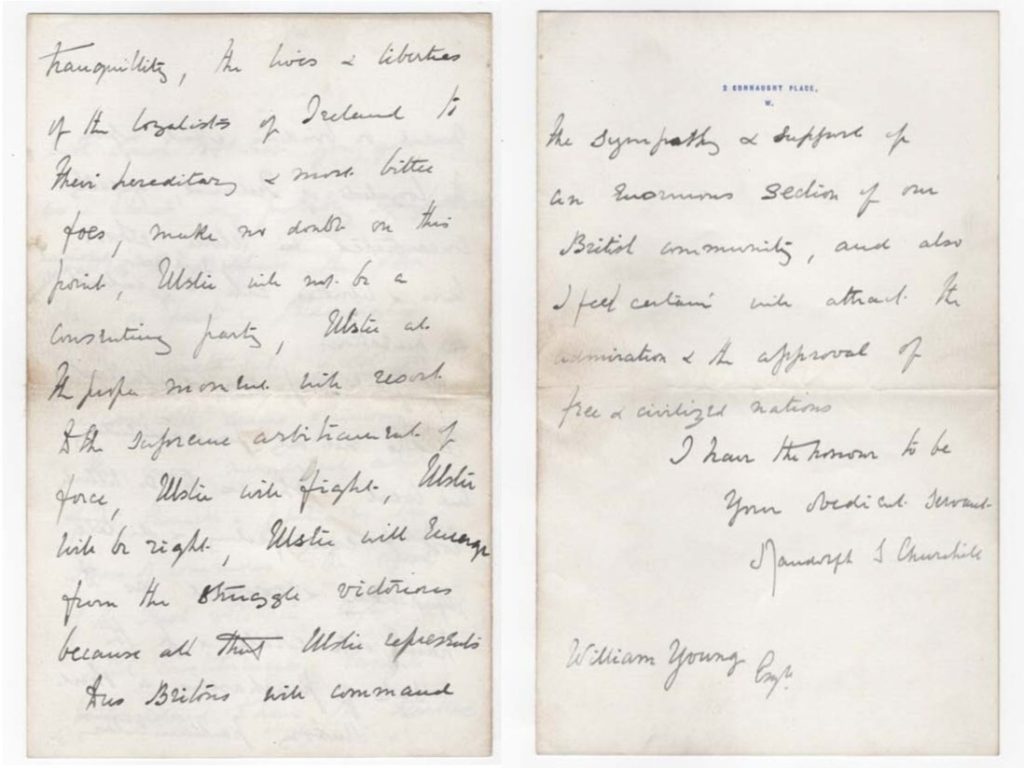 tranquillity, the lives & liberties
of the Loyalists of Ireland to
their hereditary & most bitter
foes, make no doubt on this
point, Ulster will not be a
consenting party, Ulster at
the proper moment will resort
to the supreme arbitrament of
force, Ulster will fight, Ulster
will be right, Ulster will emerge
from the struggle victorious
because all that Ulster represents
to us Britons will command
2 CONNAUGHT PLACE,
W.
the sympathy & support of
an enormous section of our
British community, and also
I feel certain will attract the
admiration & the approval of
free & civilized nations
I have the honour to be
Your obedient servant
Randolph S Churchill
William Young Esqr.